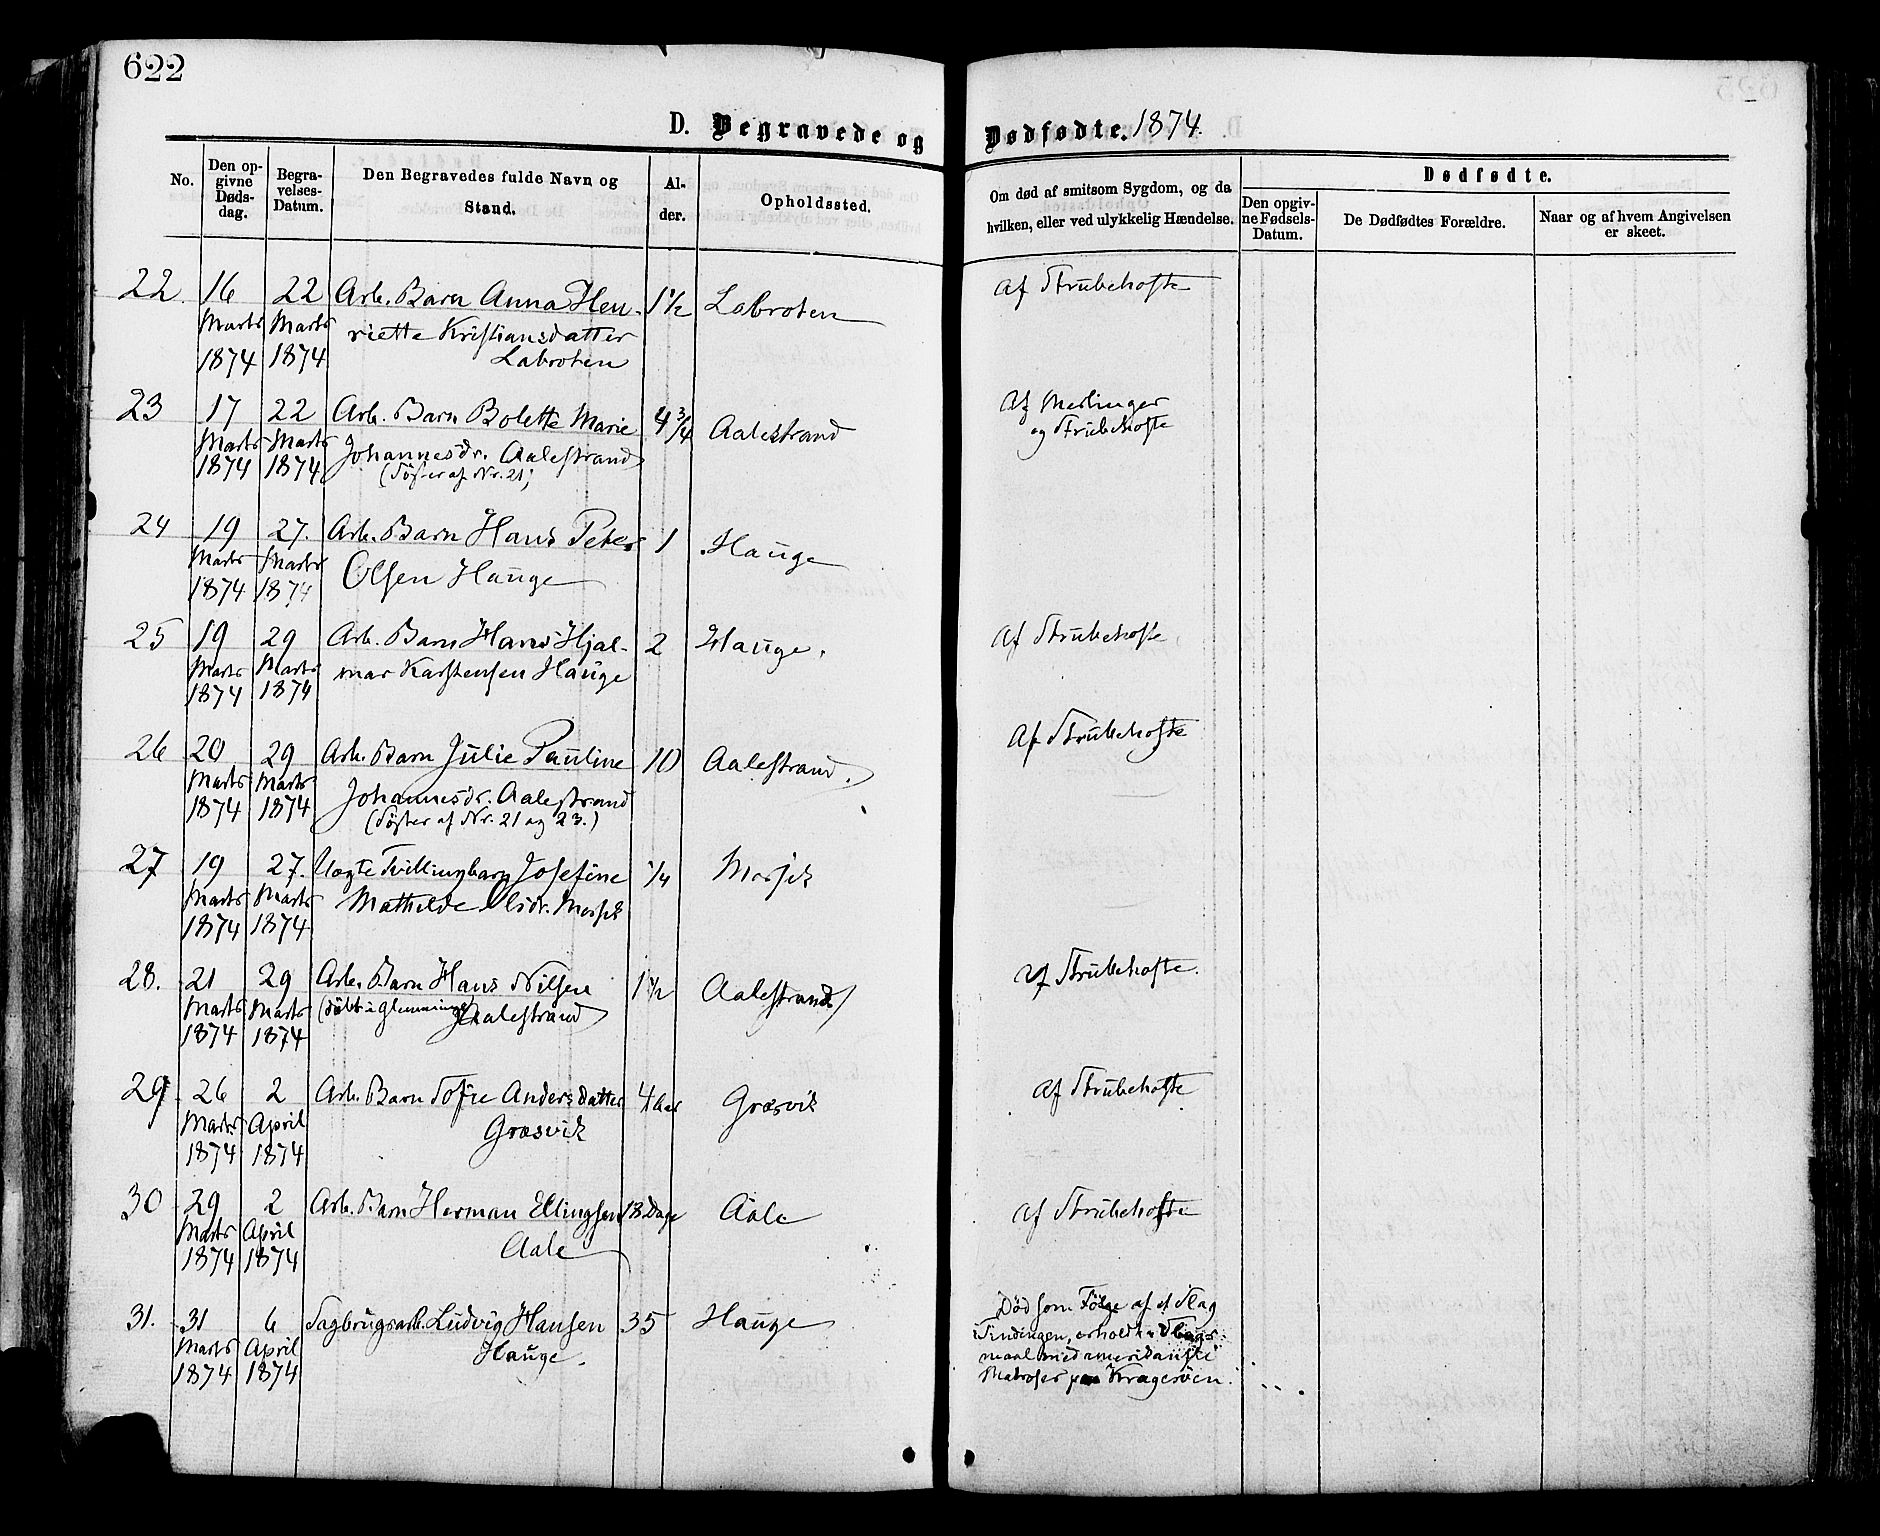 622
D. Begravede og Dødfødte. 1874.
No.
Den op-
givne
Døds-
dag.
Begra-
velses-
Datum.
Den Begravedes fulde Navn og
Stand.
Al-
der.
Opholdssted.
Om død af smitsom Sygdom, og da
hvilken, eller ved ulykkelig Hændelse.
Dødfødte.
Den opgiv-
ne Fødsels-
Datum.
De Dødfødtes Forældre.
Naar og af hvem Angivelsen
er skeet.
22. 16 22 Arb. Barn Anna Hen- 1½ Labroten Af Strubehoste
Marts Marts riette Kristiansdatter
1874 1874 Labroten
23 17 22 Arb. Barn Bolette Marie 4¾ Aalestrand Af Meslinger
Marts Marts Johannesdr. Aalestrand og Strubehoste
1874 1874 (Søster af Nr. 21;
24 19 27. Arb. Barn Hans Peter 1 Hauge
Marts Marts Olsen Hauge
1874 1874
25 19 29 Arb. Barn Hans Hjal- 2 Hauge. Af Strubehoste,
Marts Marts mar Karstensen Hauge
1874 1874
26 20 29 Arb. Barn Julie Pauline 10 Aalestrand. Af Strubehoste
Marts Marts Johannesdr. Aalestrand
1874 1874 (Søster af Nr. 21 og 23.)
27 19 27. Uægte Tvillingbarn Josefine ¼
Marts Marts Mathilde Olsdr.
1874 1874
28. 21 29 Arb. Barn Hans Nilsen 1½ Aalestrand Af Strubehoste.
Marts Marts (døbt i Glemminge) Aalestrand
1874 1874
29 26 2 Arb. Barn Sofie Andersdatter 4 Aar Græsvik Af Strubehoste
Marts April Græsvik
1874 1874
30 29 2 Arb. Barn Herman Ellingsen 18 Dage Aale Af Strubehoste
Marts April Aale
1874 1874
31. 31 6 Sagbrugsarb. Ludvig Hansen 35 Hauge Død som Følge af et Slag
Marts April Hauge. i Tindingen, erholdt i Slags-
1874 1874 maal med amerikanske
Matroser paa Kragerøen.